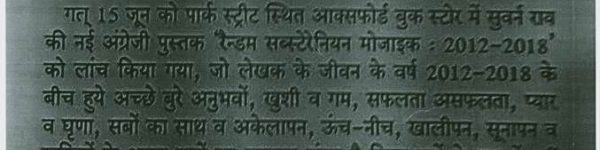 गत् 15 जून को पार्क स्ट्रीट स्थित आक्सफोर्ड बुक स्टोर में सुवर्न राव
की नई अंग्रेजी पुस्तक 'रैन्डम सब्टेरैनियन मोजाइक : 2012-2018'
को लांच किया गया, जो लेखक के जीवन के वर्ष 2012-2018 के
बीच हुये अच्छे बुरे अनुभवों, खुशी व गम, सफलता असफलता, प्यार
व घृणा, सबों का साथ व अकेलापन, ऊंच-नीच, खालीपन, सूनापन व